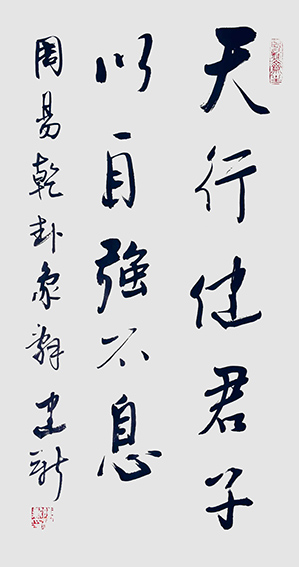 天行健君子
以自強不息
周易乾卦象辭 建新